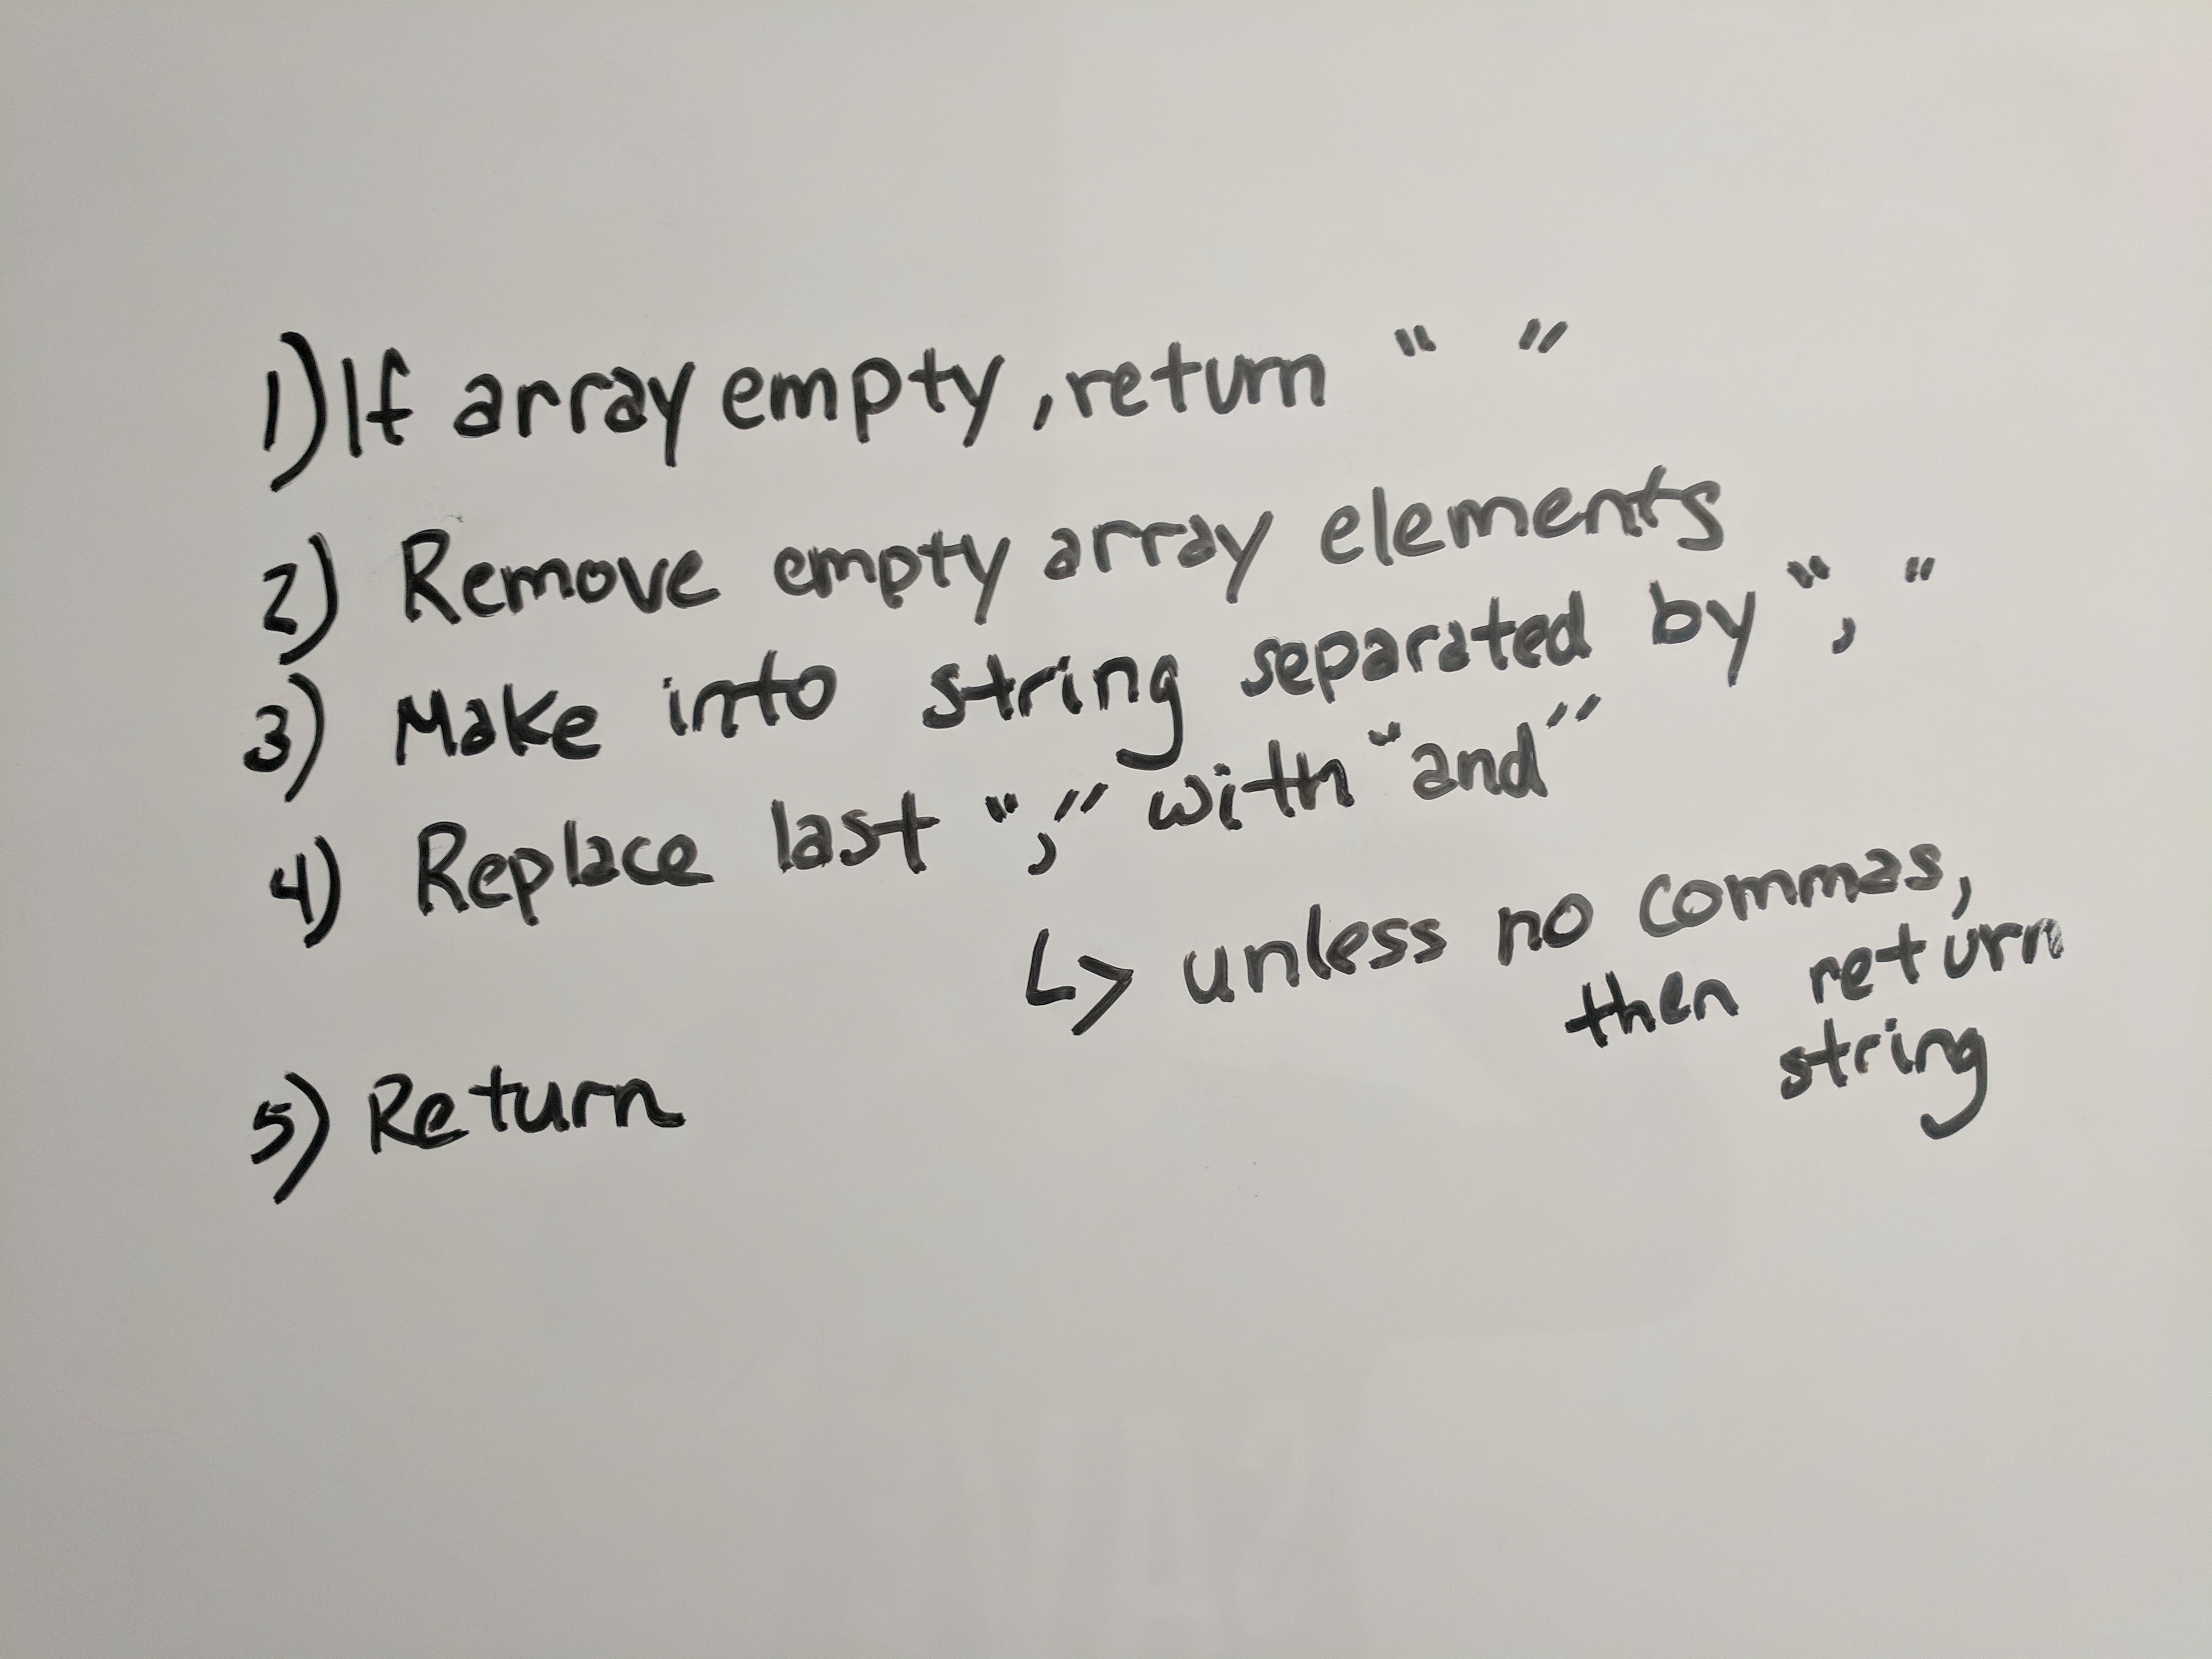 1) If array empty, return “ ”
2) Remove empty array elements
3) Make into string separated by “, ”
4) Replace last “,” with “and”
↳ unless no commas,
then return
string
5) Return